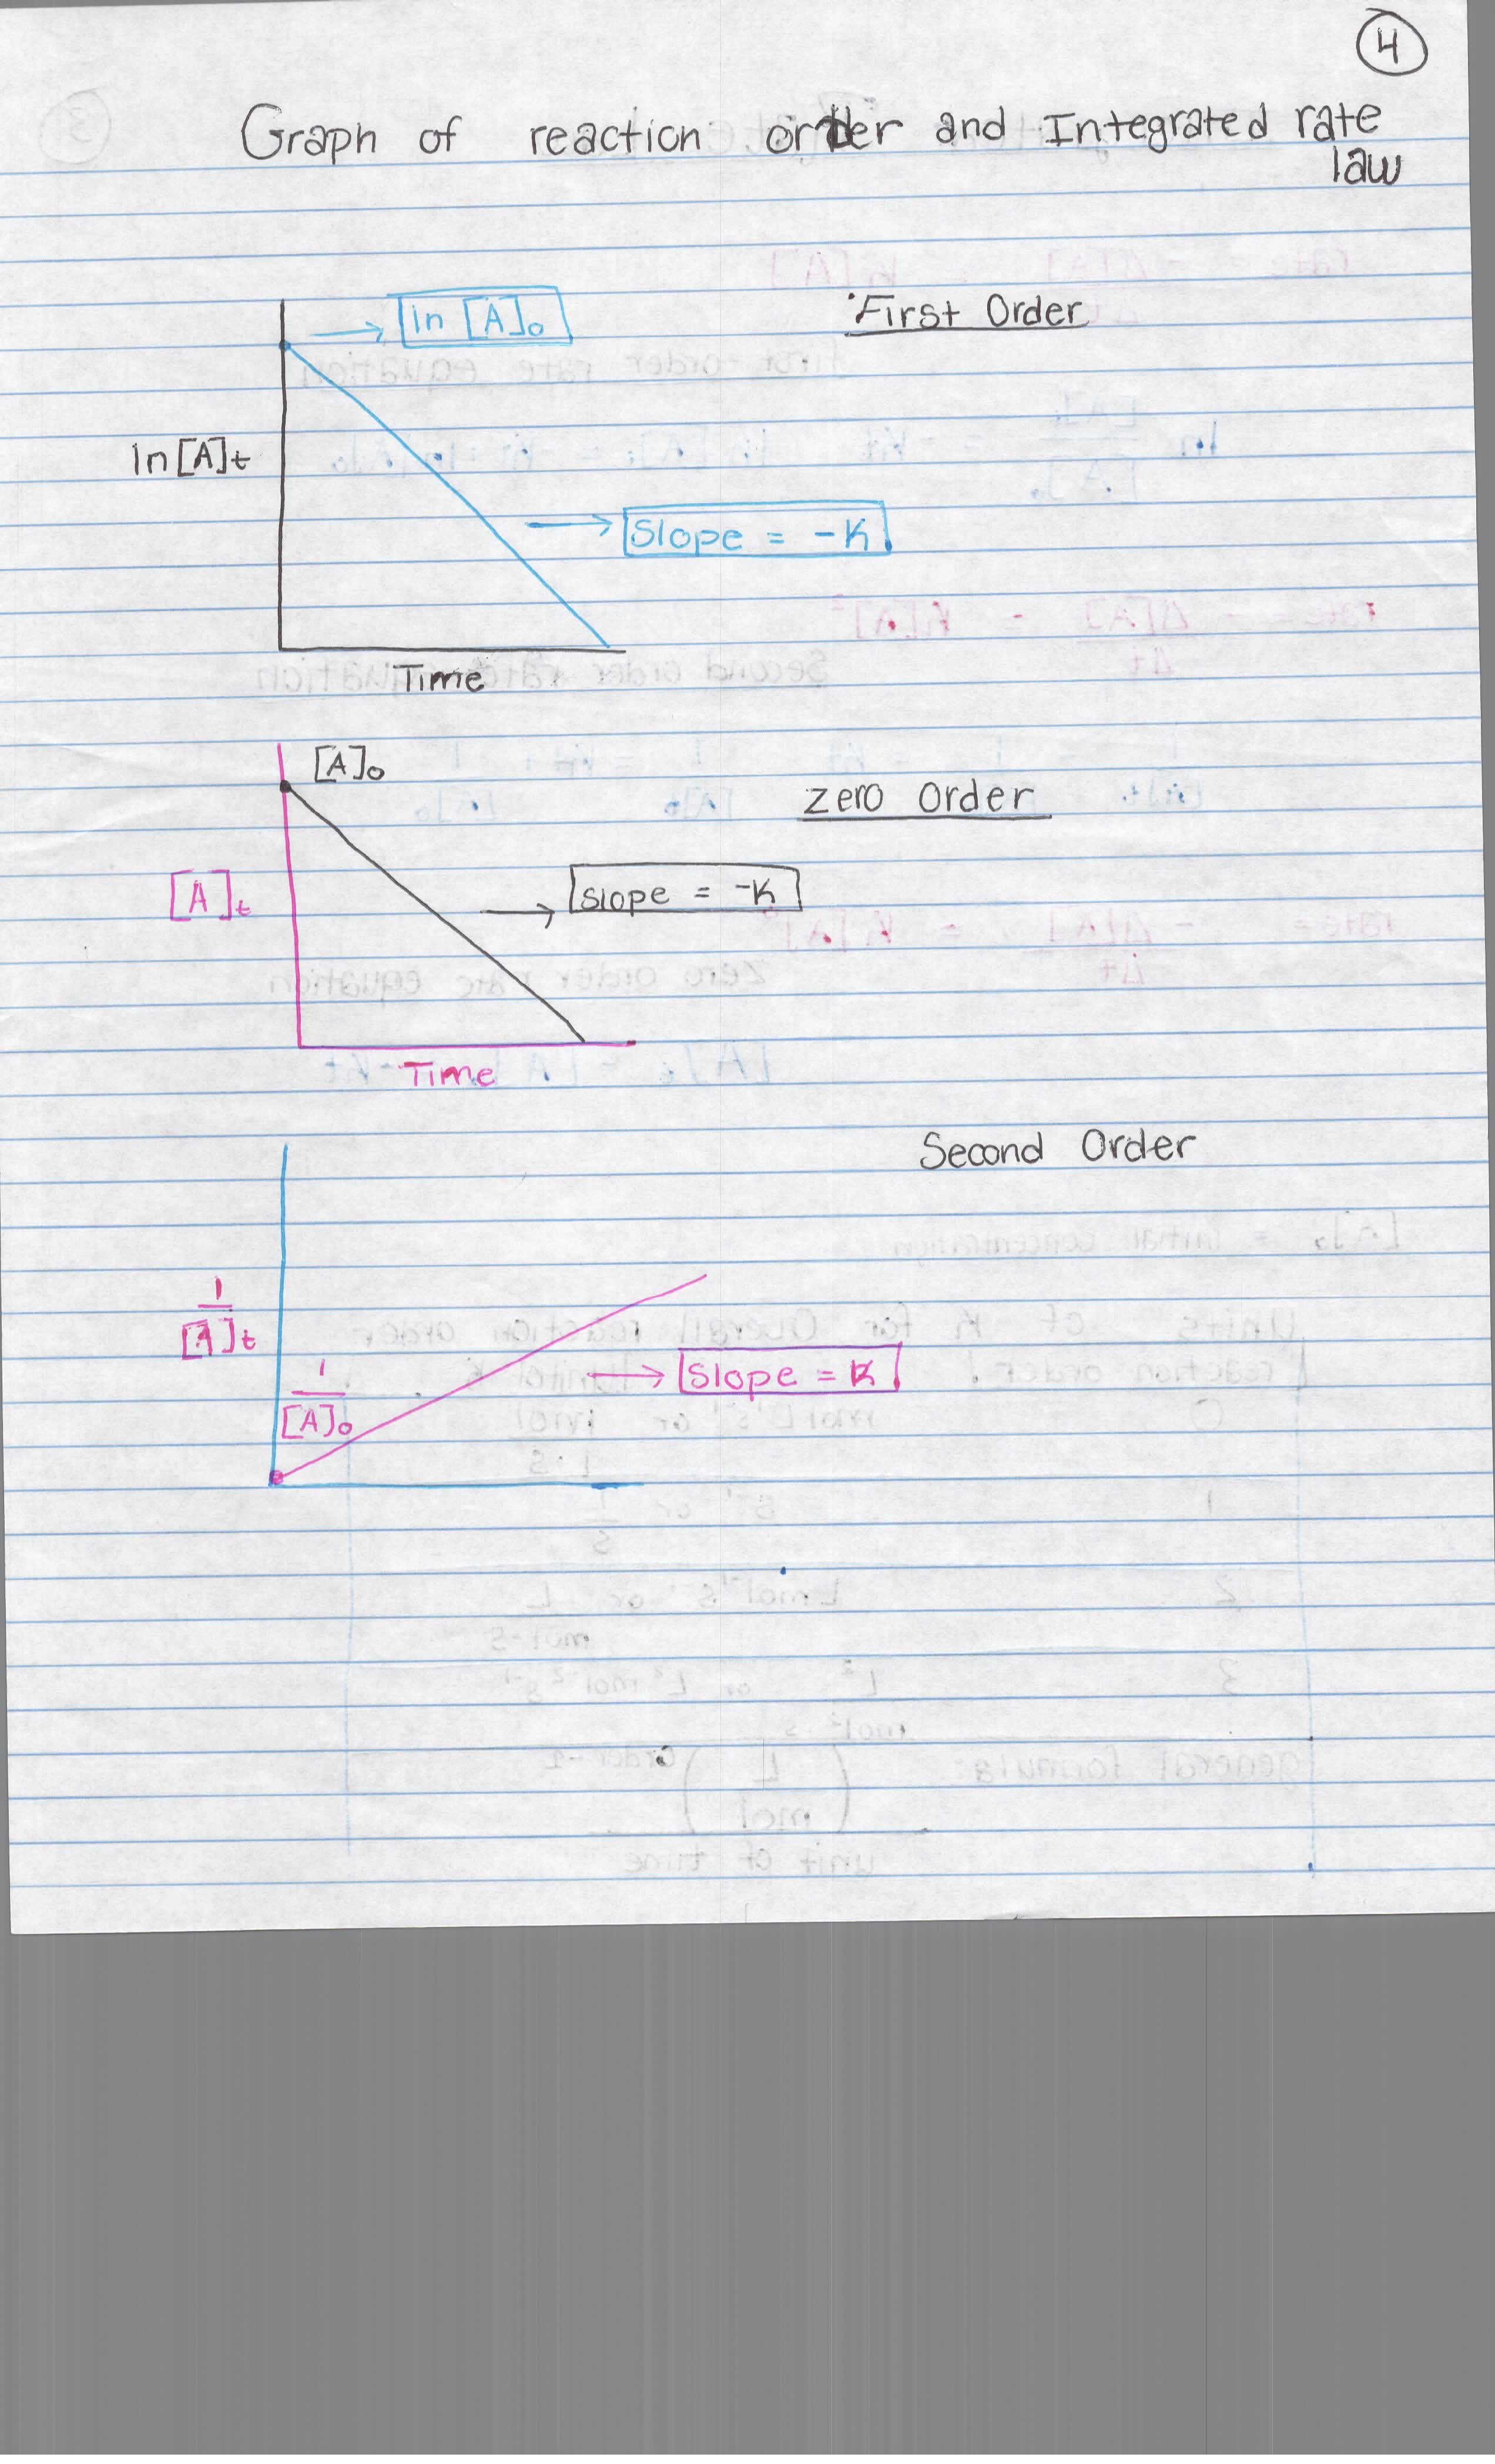 4
Graph of reaction order and Integrated rate
law
First Order
ln [A]₀
ln [A]t
Slope = -K
Time
[A]₀
zero Order
[A]t
Slope = -K
Time
Second Order
1
[A]t
1
[A]₀
Slope = K